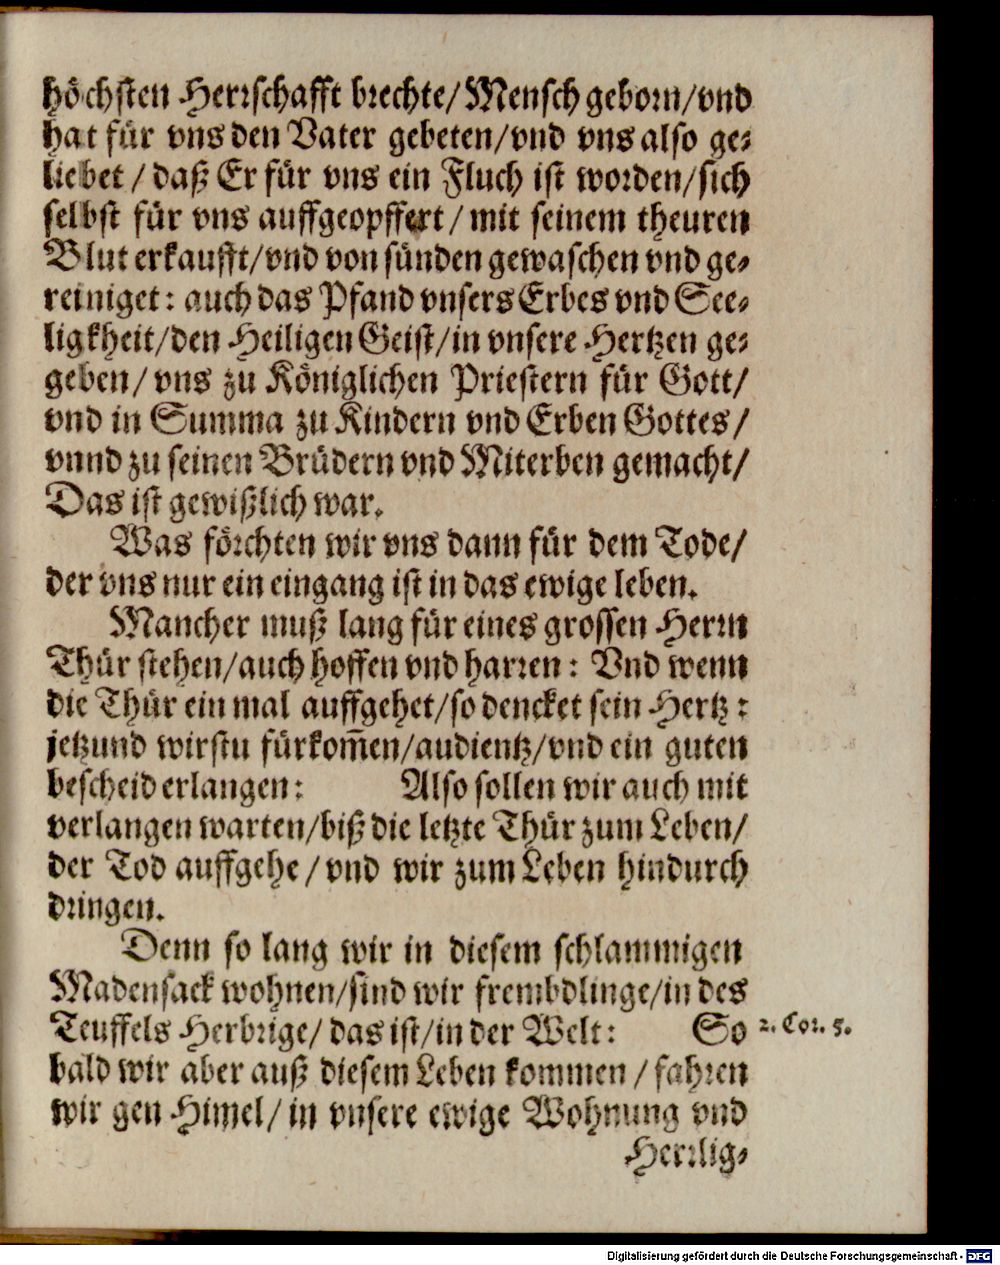 höchsten Herrschafft brechte/Mensch geborn/vnd
hat für vns den Vater gebeten/vnd vns also ge⸗
liebet / daß Er für vns ein Fluch ist worden/sich
selbst für vns auffgeopffert / mit seinem theuren
Blut erkaufft/vnd von sünden gewaschen vnd ge⸗
reiniget: auch das Pfand vnsers Erbes vnd See⸗
ligkheit/den Heiligen Geist/in vnsere Hertzen ge⸗
geben/ vns zu Königlichen Priestern für Gott/
vnd in Summa zu Kindern vnd Erben Gottes/
vnnd zu seinen Brüdern vnd Miterben gemacht/
Das ist gewißlich war.
Was förchten wir vns dann für dem Tode/
der vns nur ein eingang ist in das ewige leben.
Mancher muß lang für eines grossen Herrn
Thür stehen/auch hoffen vnd harren: Vnd wenn
die Thür ein mal auffgehet/so dencket sein Hertz:
jetzund wirstu fürkom̃en/audientz/vnd ein guten
bescheid erlangen: Also sollen wir auch mit
verlangen warten/biß die letzte Thür zum Leben/
der Tod auffgehe / vnd wir zum Leben hindurch
dringen.
Denn so lang wir in diesem schlammigen
Madensack wohnen/sind wir frembdlinge/in des
Teuffels Herbrige/ das ist/in der Welt: So
2. Cor. 5.
bald wir aber auß diesem Leben kommen / fahren
wir gen Himel/ in vnsere ewige Wohnung vnd
Herrlig⸗
Digitalisierung gefördert durch die Deutsche Forschungsgemeinschaft - DFG